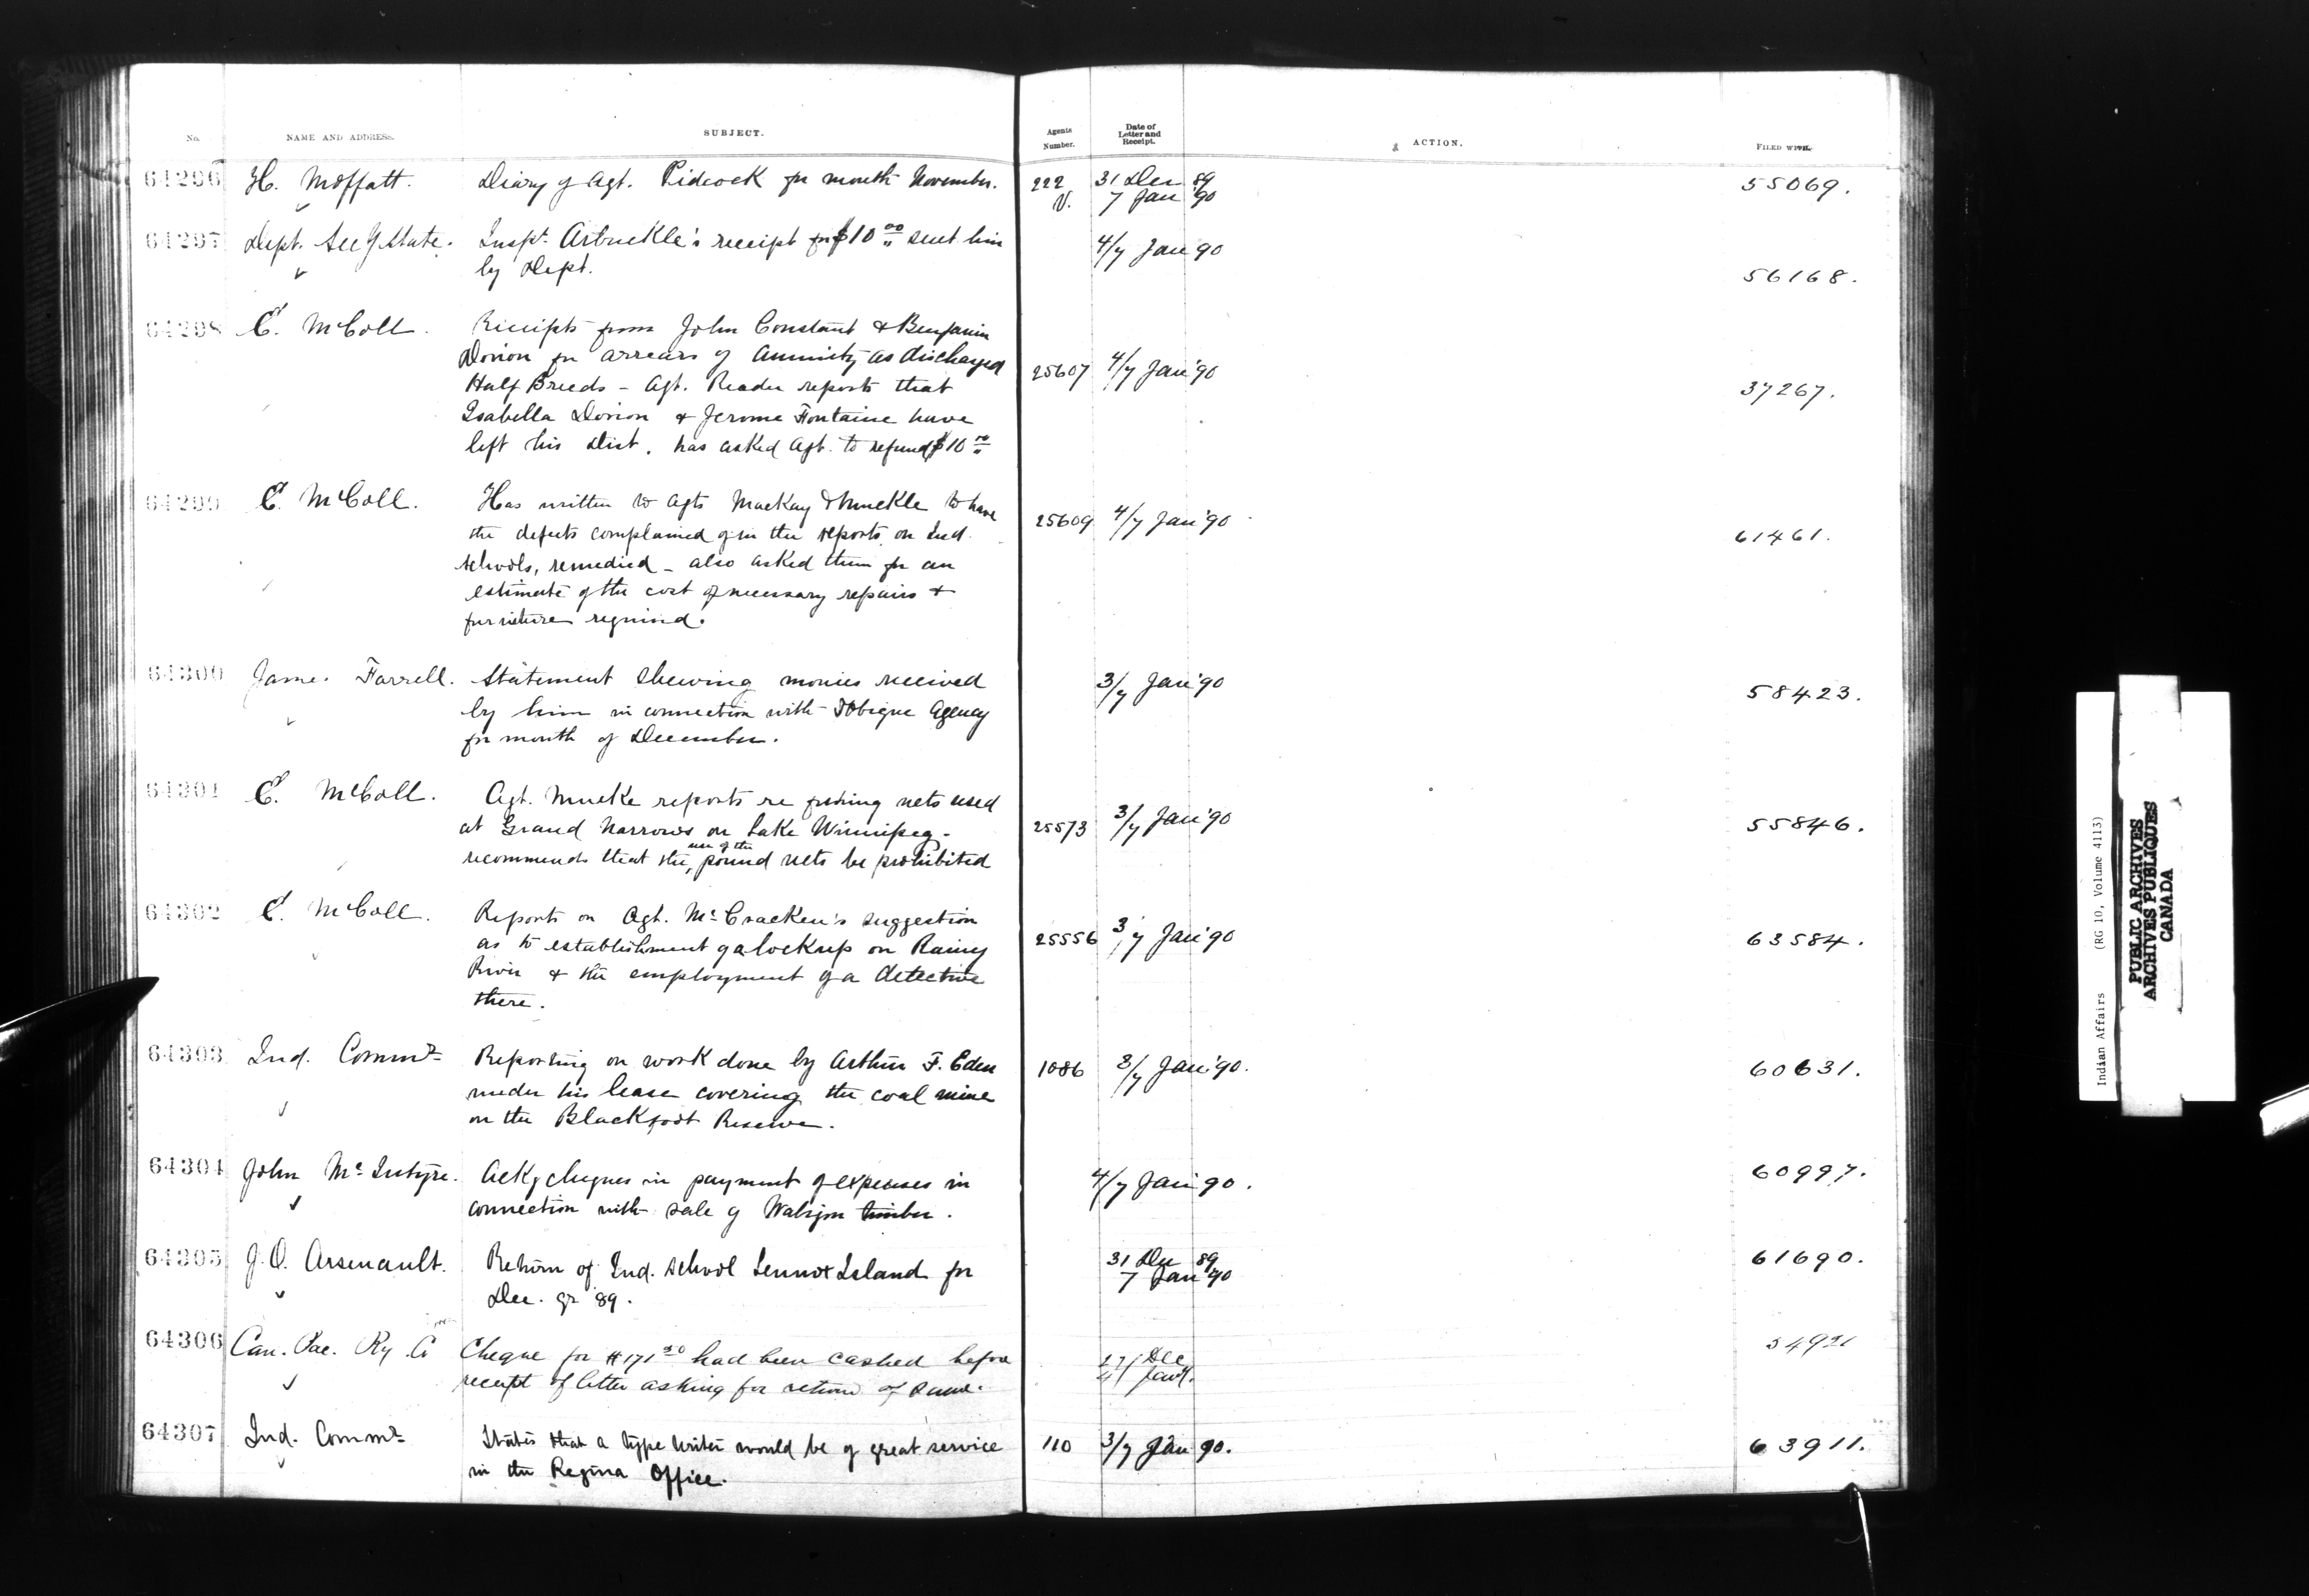 No. NAME AND ADDRESS. SUBJECT. Agents Number. Date of Letter and Receipt. ACTION. FILED WITH.
64296 H. Moffatt. Diary of Agt. Pidcock for month November. 222 V. 31 Dec 89 55069.
7 Jan '90
64297 Dept. Sec of State. Inspt. Arbuckle's receipt for $10 00 sent him 4/7 Jan 90
by Dept. 56168.
64298 E. McColl. Receipts from John Constant & Benjamin
Dorion for arrears of annuity as discharged 25607 4/7 Jan '90
Half Breeds – Agt. Reader reports that 37267.
Isabella Dorion & Jerome Fontaine have
left his Dist. has asked Agt. to refund $10 00
64299 E. McColl. Has written to Agts Mackay & Muckle to have 25609 4/7 Jan '90
the defects complained of in the reports on Ind. 61461.
schools, remedied – also asked them for an
estimate of the cost of necessary repairs &
furniture required.
64300 James Farrell. Statement shewing monies received 3/7 Jan '90 58423.
by him in connection with Tobique Agency
for month of December.
64301 E. McColl. Agt. Mucke reports re fishing nets used
at Grand Narrows on Lake Winnipeg – 25573 3/7 Jan '90 55846.
recommends that the use of the pound nets be prohibited
64302 E. McColl. Reports on Agt. McCracken's suggestion
as to establishment of a lockup on Rainy 25556 3/7 Jan '90 63584.
River & the employment of a detective
there.
64303 Ind. Commr Reporting on work done by Arthur F. Eden 1086 3/7 Jan '90. 60631.
under his lease covering the coal mine
on the Blackfoot Reserve.
64304 John McIntyre. Ackg cheques in payment of expenses in 4/7 Jan 90. 60997.
connection with sale of timber.
64305 J.O. Arsenault. Return of Ind. school Lennox Island for 31 Dec 89 61690.
Dec. qr '89. 7 Jan '90
64306 Can. Pac. Ry. Co Cheque for $171 50 had been cashed before 27/ Dec
receipt of letter asking for return of same. Jan
64307 Ind. Commr States that a type writer would be of great service 110 3/7 Jan 90. 63911.
in the Regina Office.
Indian Affairs (RG 10, Volume 4113)
PUBLIC ARCHIVES
ARCHIVES PUBLIQUES
CANADA